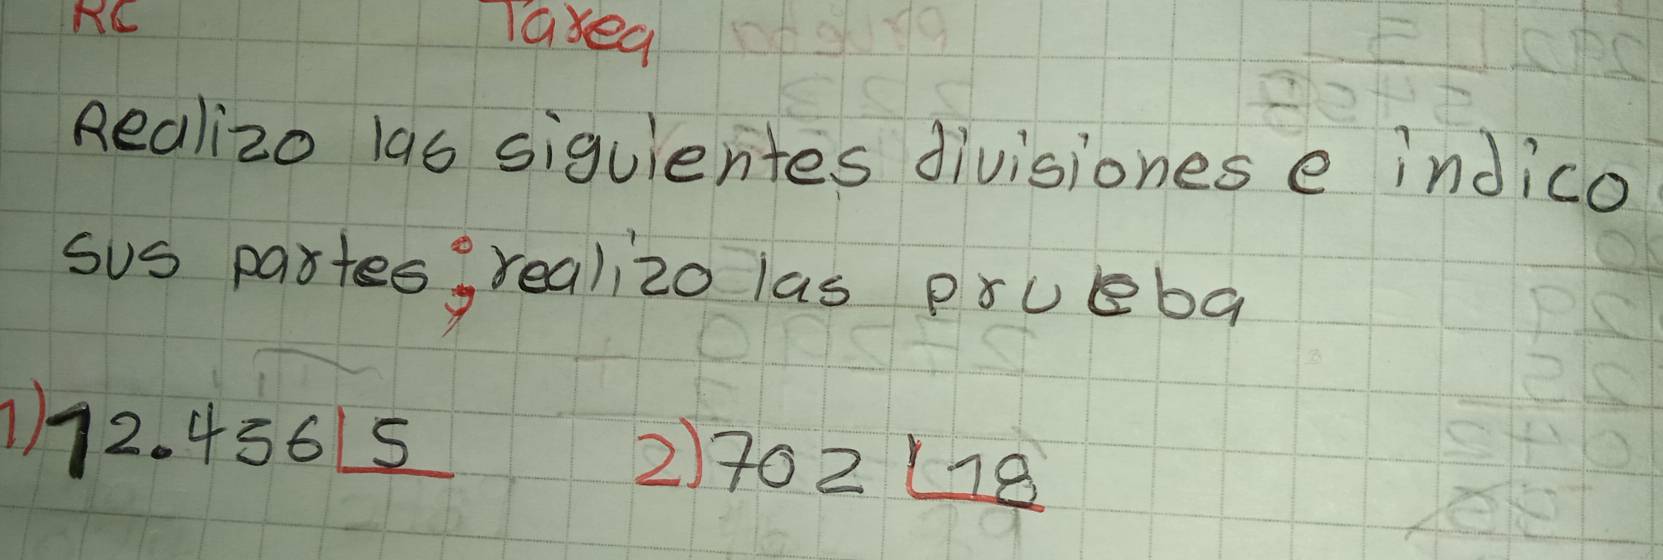 RC Tarea
Realizo las siguientes divisiones e indico
sus partes; realizo las prueba
1) 12.456 5 2) 702 18